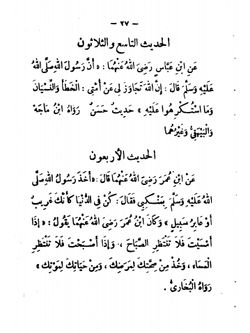 - ٢٧ -
الحديث التاسع والثلاثون
عَنِ ابْنِ عَبَّاسٍ رَضِيَ اللهُ عَنْهُمَا : « أَنَّ رَسُولَ اللهِ صَلَّى اللهُ
عَلَيْهِ وَسَلَّمَ قَالَ : إِنَّ اللهَ تَجَاوَزَ لِي عَنْ أُمَّتِي : الْخَطَأَ وَالنِّسْيَانَ
وَمَا اسْتُكْرِهُوا عَلَيْهِ » حَدِيثٌ حَسَنٌ رَوَاهُ ابْنُ مَاجَةَ
وَالْبَيْهَقِيُّ وَغَيْرُهُمَا
الحديث الأربعون
عَنِ ابْنِ عُمَرَ رَضِيَ اللهُ عَنْهُمَا قَالَ : « أَخَذَ رَسُولُ اللهِ صَلَّى اللهُ
عَلَيْهِ وَسَلَّمَ بِمَنْكِبِي فَقَالَ : كُنْ فِي الدُّنْيَا كَأَنَّكَ غَرِيبٌ
أَوْ عَابِرُ سَبِيلٍ » وَكَانَ ابْنُ عُمَرَ رَضِيَ اللهُ عَنْهُمَا يَقُولُ : « إِذَا
أَمْسَيْتَ فَلَا تَنْتَظِرِ الصَّبَاحَ ، وَإِذَا أَصْبَحْتَ فَلَا تَنْتَظِرِ
الْمَسَاءَ ، وَخُذْ مِنْ صِحَّتِكَ لِمَرَضِكَ ، وَمِنْ حَيَاتِكَ لِمَوْتِكَ »
رَوَاهُ الْبُخَارِيُّ .